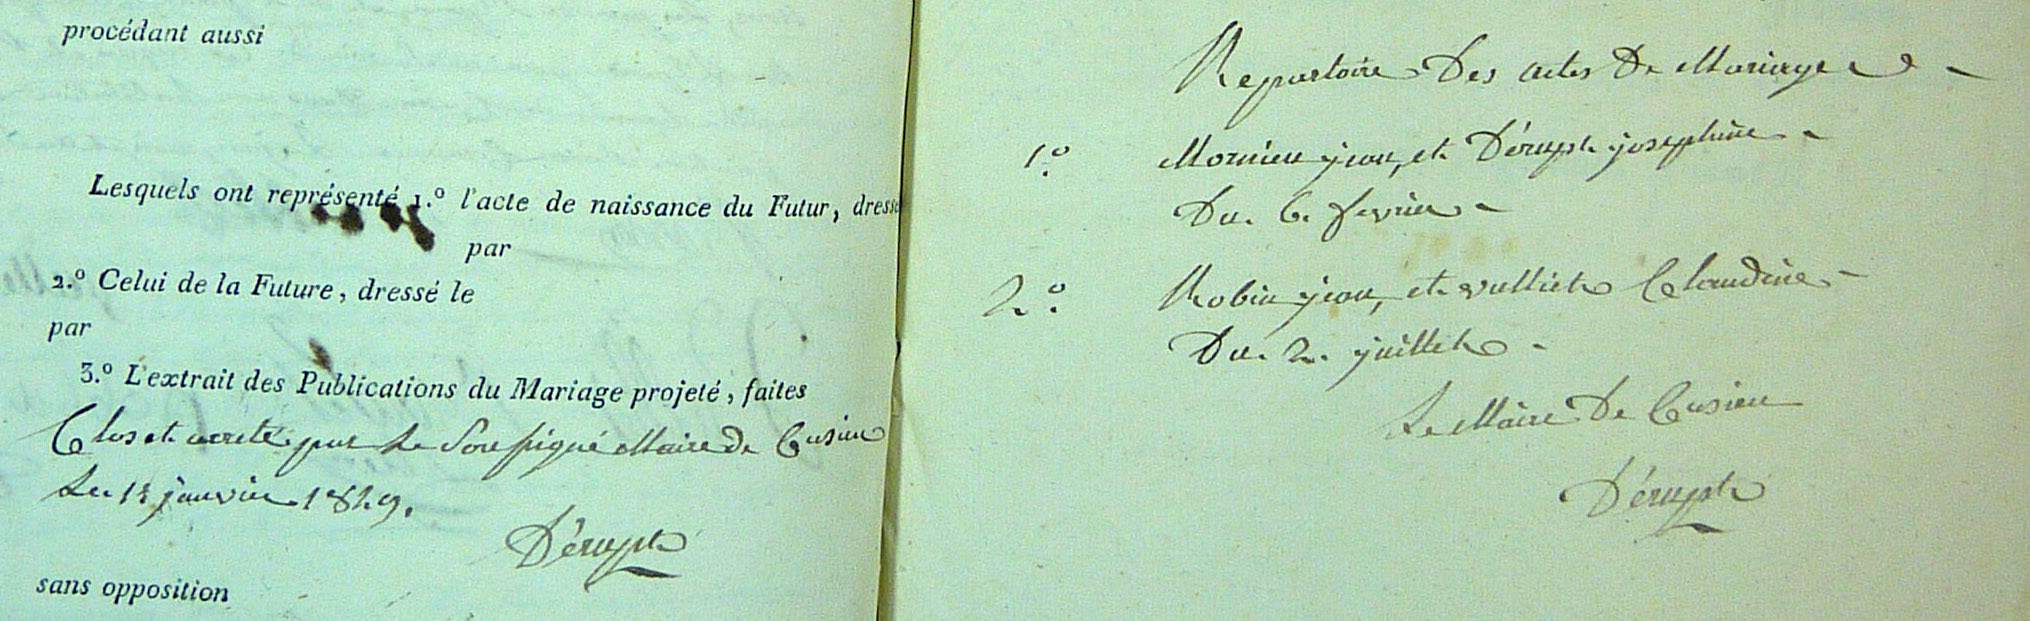 procédant aussi
Lesquels ont représenté 1.º l'acte de naissance du Futur, dressé
par
2.º Celui de la Future, dressé le
par
3.º L'extrait des Publications du Mariage projeté, faites
Clos et arreté par Le Soussigné Maire de Cusieu
Le janvier
Dérupt
sans opposition
Repertoire Des actes De Mariage
1.º Mornieu jean, et Dérupt josephine
Du 6 fevrier
2.º Robin jean, et Claudine
Du 2 juillet
Le Maire De Cusieu
Dérupt